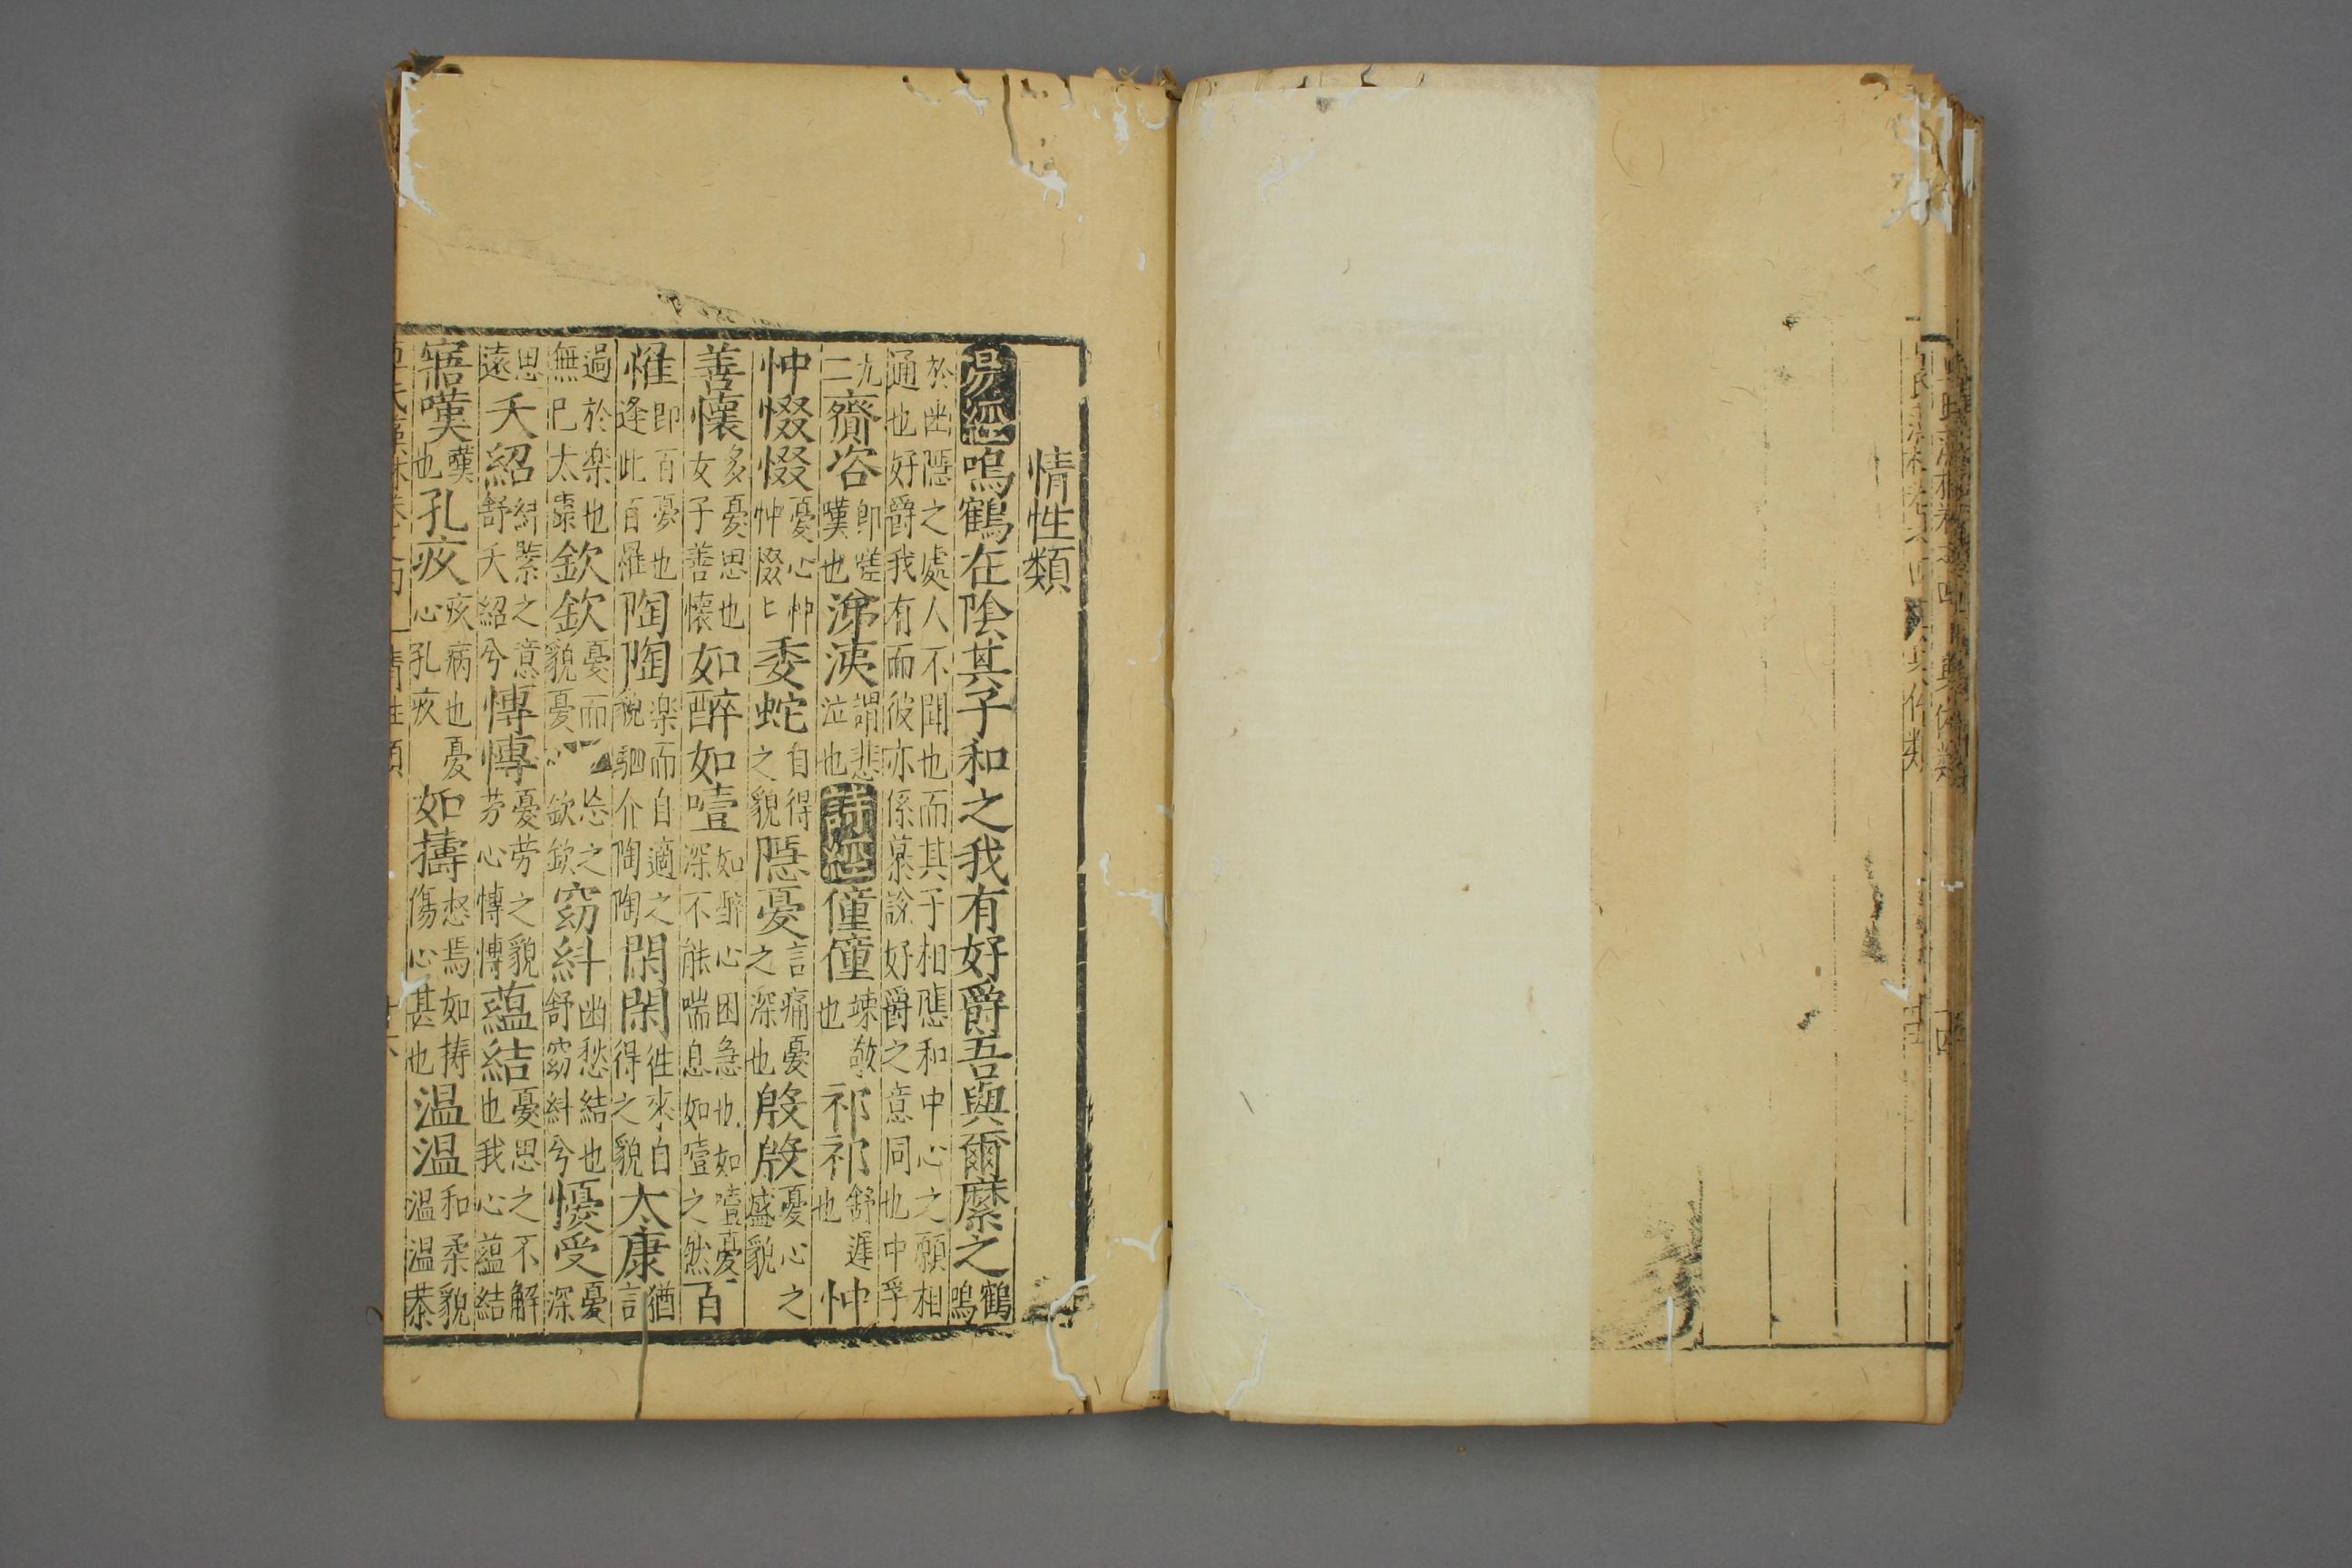 情性類
易經鳴鶴在陰其子和之我有好爵吾與爾縻之鶴鳴
於幽隱之處人不聞也而其子相應和中心之願相
通也好爵我有而彼亦係慕說好爵之意同也中孚
九二齎咨即嗟嘆也涕洟謂悲泣也詩經僮僮竦敬也祁祁舒遲也忡
忡惙惙憂心忡忡惙匕委蛇自得之貌隱憂言痛憂之深也慇慇憂心之盛貌
善懷多憂思也女子善懷如醉如噎如醉心困急也如噎憂深不能喘息如噎之然百
罹即百憂也逢此百罹陶陶楽而自適之貌駟介陶陶閑閑徃來自得之貌太康猶言
過於楽也無巳太康欽欽憂而忘之貌憂心欽欽窈紏幽愁結也舒窈紏兮懮受憂
思遠夭紹紏緊之意舒夭紹兮慱慱憂劳之貌劳心慱慱蘊結憂思之不解也我心蘊結
寤嘆嘆也孔疚疚病也憂心孔疚如擣怒焉如擣傷心甚也温温和柔貌温温恭
情性類